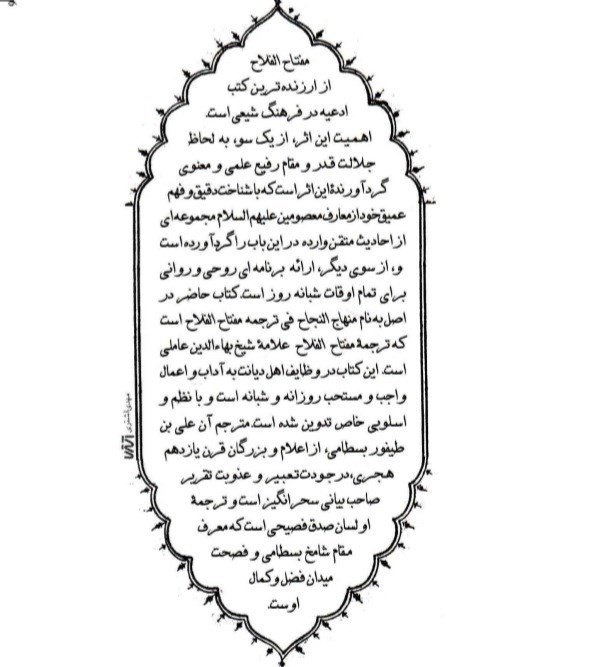 مفتاح الفلاح
از ارزنده‌ترین کتب
ادعیه در فرهنگ شیعی است.
اهمیت این اثر، از یک سو، به لحاظ
جلالت قدر و مقام رفیع علمی و معنوی
گردآورندۀ این اثر است که با شناخت دقیق و فهم
عمیق خود از معارف معصومین علیهم السلام مجموعه‌ای
از احادیث متقن وارده در این باب را گرد آورده است
و، از سوی دیگر، ارائه برنامه‌ای روحی و روانی
برای تمام اوقات شبانه روز است. کتاب حاضر در
اصل به نام منهاج النجاح فی ترجمه مفتاح الفلاح است
که ترجمۀ مفتاح الفلاح علامۀ شیخ بهاءالدین عاملی
است. این کتاب در وظایف اهل دیانت به آداب و اعمال
واجب و مستحب روزانه و شبانه است و با نظم و
اسلوبی خاص تدوین شده است. مترجم آن علی بن
طیفور بسطامی، از اعلام و بزرگان قرن یازدهم
هجری، در جودت تعبیر و عذوبت تقریر
صاحب بیانی سحرانگیز است و ترجمۀ
او لسان صدق فصیحی است که معرف
مقام شامخ بسطامی و فصحت
میدان فضل و کمال
اوست.